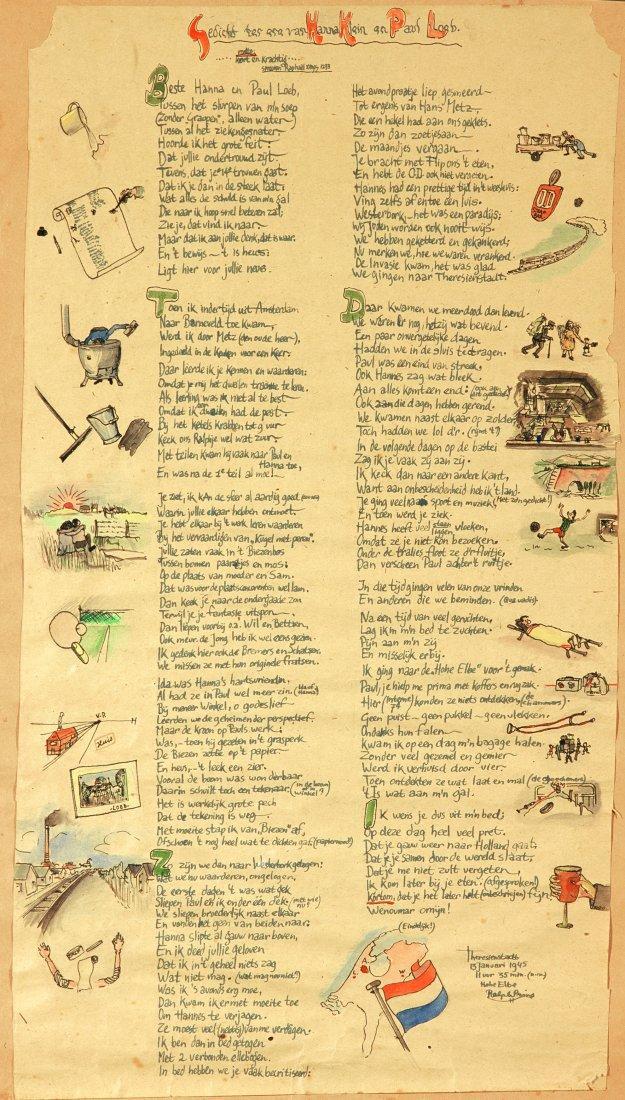 Gedicht ter ere van Hanna Klein en Paul Loeb.
kort en krachtig
Beste Hanna en Paul Loeb,
Tussen het slurpen van m'n soep
(Zonder Graupen, alleen water)
Tussen al het ziekengesnater
Hoorde ik het grote feit:
Dat jullie ondertrouwd zijt
Tevens, dat je trouwen gaat.
Dat ik je dan in de steek laat:
Wat alles de schuld is van m'n gal
Die naar ik hoop snel beteren zal;
Zie je, dat vind ik naar
Maar dat ik aan jullie denk, dat is waar.
En 't bewijs - 't is heus:
Ligt hier voor jullie neus.
Toen ik indertijd uit Amsterdam
Naar Barneveld toe kwam,
Werd ik door Metz (den oude heer),
Ingedeeld in de keuken voor een keer.
Daar leerde ik je kennen en waarderen:
Omdat je mij het dweilen trachtte te leren.
Als leerling was ik niet al te best
Omdat ik dweilen had de pest
Bij het ketels krabben tot 9 uur
Keek ons Ralphje wel wat zuur,
Met teilen kwam hij vaak naar Paul en
Hanna toe,
En was na de 1e teil al moe!
Je zat, ik kan de sfeer al aardig goed
Waarin jullie elkaar hebben ontmoet.
Je hebt elkaar bij 't werk leren waarderen
Bij het vervaardigen van "Kugel met peren".
Jullie zaten vaak in 't Biezenbos
Tussen bomen paartjes en mos:
Op de plaats van moeder en Sam.
Dat was voor de plaatsconcurrenten wel lam.
Dan keek je naar de ondergaande zon
Terwijl je je fantasie uitspon
Dan liepen voorbij o.a. Wil en Betten,
Ook meur. de Jong heb ik wel eens gezien.
Ik gedenk hier ook de Bremers en Schatzen,
We missen ze met hun originele fratsen.
Ida was Hanna's hartsvriendin,
Al had ze in Paul wel meer zin.
Bij meneer Winkel, o godeslief
Leerden we de geheimen der perspectief.
Maar de kroon op Pauls werk
Was, toen hij gezeten in 't grasperk
De Biezen zette op 't papier
En heus, 't leek een zier.
Vooral de boom was wonderbaar
Daarin schuilt toch een tekenaar. (in de boom of in Winkel?)
Het is werkelijk grote pech
Dat de tekening is weg
Met moeite stap ik van "Biezen" af,
Ofschoon 't nog heel wat te dichten gaf. (papiernood!)
Zo zijn we dan naar Westerbork gelogen:
Wat we nu waarderen, ongelogen,
De eerste dagen 't was wat gek
Sliepen Paul en ik onder één dek; (met wie nu?)
We sliepen broederlijk naast elkaar
En vonden het geen van beiden naar.
Hanna slipte al gauw naar boven,
En ik deed jullie geloven
Dat ik in 't geheel niets zag
Wat niet mag. (wat mag nou niet?)
Was ik 's avonds en moe,
Dan kwam ik er met moeite toe
Om Hannes te verjagen.
Ze moest veel van me verdragen.
Ik ben dan in bed getogen
Met 2 verbonden ellebogen.
In bed hebben we je vaak becritiseerd:
Het avondpraatje liep gesmeerd
Tot ergenis van Hans Metz,
Die een hekel had aan ons geklets.
Zo zijn dan zoetjesaan
De maandjes vergaan
Je bracht met Flip ons 't eten,
En hebt de O.D. ook niet vergeten.
Hannes had een prettige tijd in 't washuis:
Ving zelfs af en toe een luis.
Westerbork - het was een paradijs;
Wij Joden worden ook nooit wijs.
We hebben geketterd en gekankerd;
Nu merken we, hoe we waren verankerd.
De Invasie kwam, het was glad
We gingen naar Theresienstadt.
Daar kwamen we meer dood dan levend.
We waren er nog, hetzij wat bevend.
Een paar onvergetelijke dagen
Hadden we in de sluis te dragen.
Paul was een eind van streek,
Ook Hannes zag wat bleek
Aan alles komt een eind.
Ook aan die dagen hebben gerend.
We kwamen naast elkaar op zolder,
Toch hadden we lol d'r. (rijmt 't?)
In de volgende dagen op de bastei
Zag ik je vaak zij aan zij.
Ik keek dan naar een andere kant,
Want aan onbescheidenheid heb ik 't land.
Je ging veel naar sport en muziek (Het zo'n gedicht!)
En toen werd je ziek.
Hannes heeft veel staan vloeken,
Omdat ze je niet kon bezoeken.
Onder de tralies floot ze d'r fluitje,
Dan verscheen Paul achter 't ruitje.
In die tijd gingen velen van onze vrinden
En anderen die we beminden. (Quo vadis)
Na een tijd van veel geruchten,
Lag ik in m'n bed te zuchten.
Pijn aan m'n zij
En misselijk erbij.
Ik ging naar de "Hohe Elbe" voor 't gemak.
Paul, je hielp me prima met koffers en rugzak.
Hier (interne) konden ze niets ontdekken (de stammers)
Geen puist - geen pukkel - geen vlekken.
Ondanks hun falen
Kwam ik op een dag m'n bagage halen
Zonder veel gezemel en gemier
Werd ik verhuisd door vier.
Toen ontdekten ze wat laat en mal
't Is wat aan m'n gal.
Ik wens je dus uit m'n bed;
Op deze dag heel veel pret.
Dat je gauw weer naar Holland gaat;
Dat je je samen door de wereld slaat,
Dat je me niet zult vergeten,
Ik kom later bij je eten. (afgesproken!)
Kortom, dat je het later hebt fijn,
Wenoumar omijn!
(Eindelijk!)
Theresienstadt
13 Januari 1945
11 uur 35 min.
Hohe Elbe
O.D
V.P.
H
Huis
LOEB.